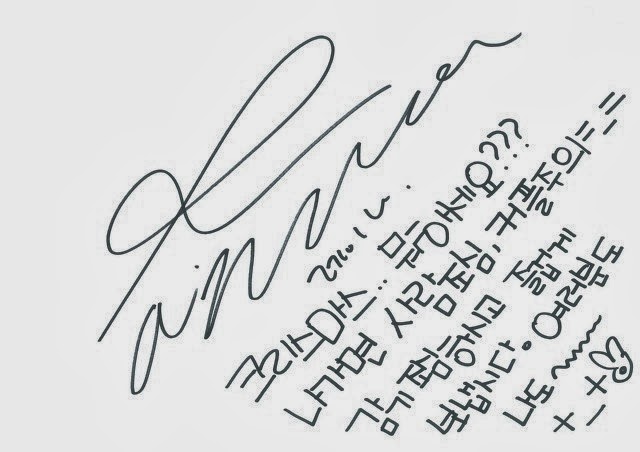 크리스마스.. 뭐하세요???
나가면 사람조심, 커플주의=_=
감기 조심하시고 즐겁게
보냅시다. 여러분도
나도~~~
+_+